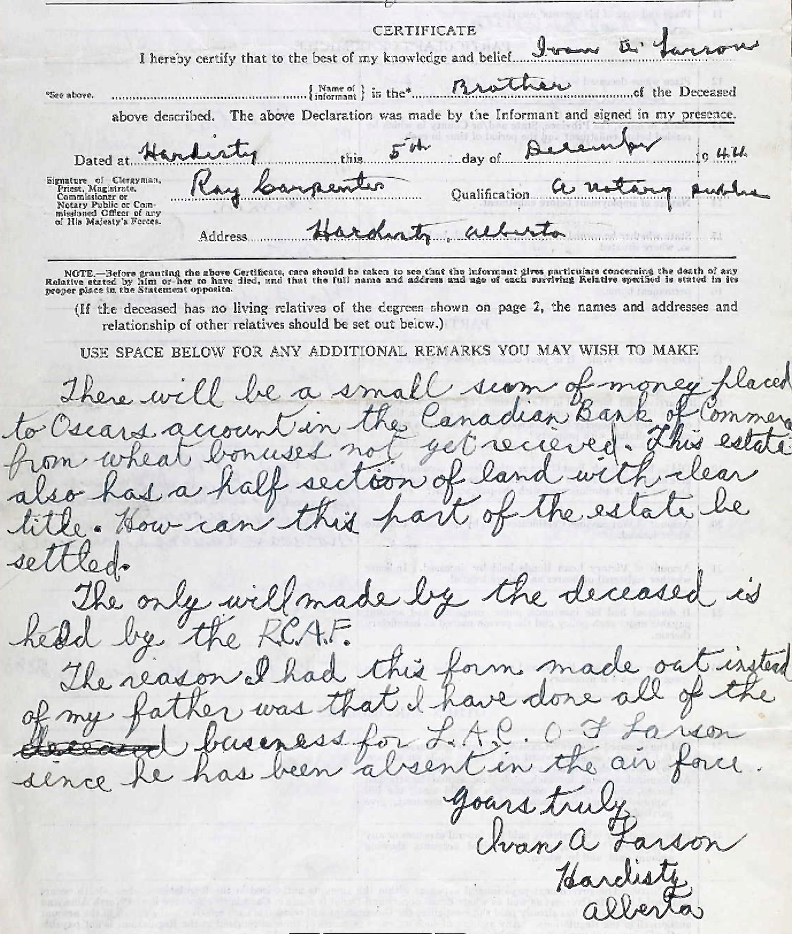 CERTIFICATE
I hereby certify that to the best of my knowledge and belief Ivan A. Larson
*See above. {Name of informant} is the* Brother of the Deceased
above described. The above Declaration was made by the Informant and signed in my presence.
Dated at Hardisty this 5th day of December 1944
Signature of Clergyman,
Priest, Magistrate,
Commissioner or
Notary Public or Com-
missioned Officer of any
of His Majesty's Forces.
Ray Carpenter Qualification A notary public
Address Hardisty, Alberta
NOTE.—Before granting the above Certificate, care should be taken to see that the informant gives particulars concerning the death of any
Relative stated by him or her to have died, and that the full name and address and age of each surviving Relative specified is stated in its
proper place in the Statement opposite.
(If the deceased has no living relatives of the degrees shown on page 2, the names and addresses and
relationship of other relatives should be set out below.)
USE SPACE BELOW FOR ANY ADDITIONAL REMARKS YOU MAY WISH TO MAKE
There will be a small sum of money placed
to Oscars account in the Canadian Bank of Commerce
from wheat bonuses not yet recieved. This estate
also has a half section of land with clear
title. How can this part of the estate be
settled.
The only will made by the deceased is
held by the R.C.A.F.
The reason I had this form made out instead
of my father was that I have done all of the
deceased business for L.A.C. O F Larson
since he has been absent in the air force.
yours truly
Ivan A Larson
Hardisty
Alberta